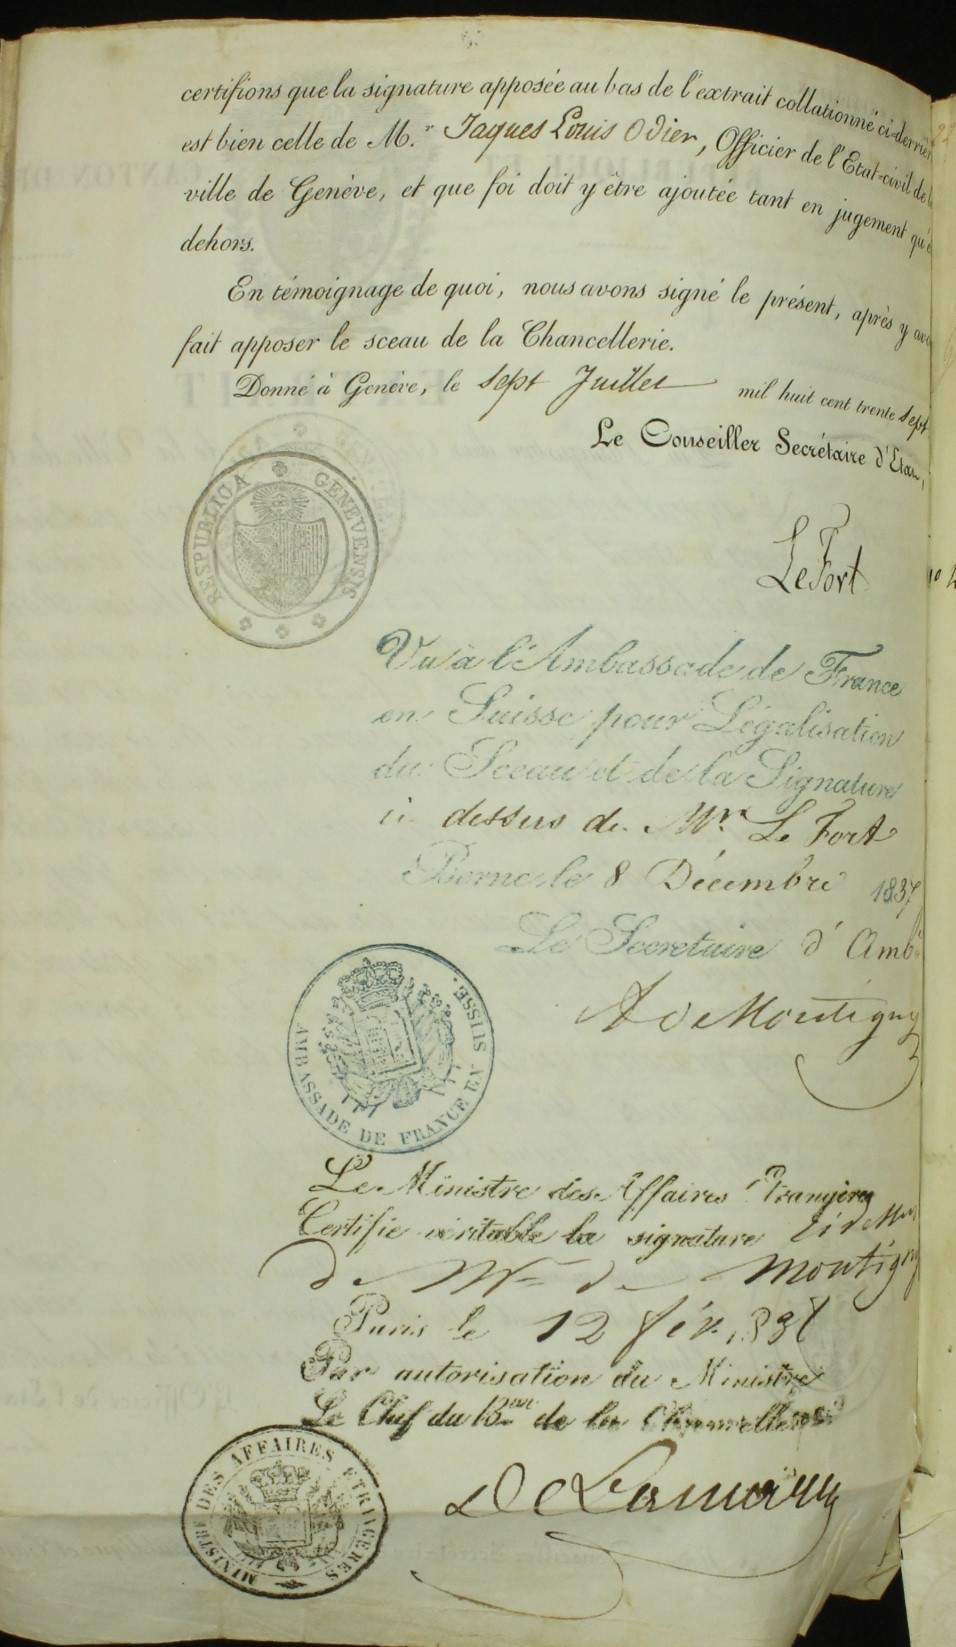 certifions que la signature apposée au bas de l'extrait collationné ci-derrière
est bien celle de M.r Jaques Louis Odier, Officier de l'Etat-civil de la
ville de Genève, et que foi doit y être ajoutée tant en jugement qu'e
dehors.
En témoignage de quoi, nous avons signé le présent, après y avoi
fait apposer le sceau de la Chancellerie.
Donné à Genève, le Sept Juillet mil huit cent trente sept
Le Conseiller Secrétaire d'Etat,
RESPUBLICA GENEVENSIS
Le Fort
Vu à l'Ambassade de France
en Suisse pour Légalisation
du Sceau et de la Signature
ci dessus de Mr. Le Fort
Berne le 8 Décembre 1837
Le Secretaire d'Amb.
A de Montigny
AMBASSADE DE FRANCE EN SUISSE.
Le Ministre des Affaires Etrangères
Certifie véritable la signature
de Mr de Montigny
Paris le 12 fév. 1838
Par autorisation du Ministre
Le Chef du Bau de la Chancellerie
MINISTRE DES AFFAIRES ETRANGERES